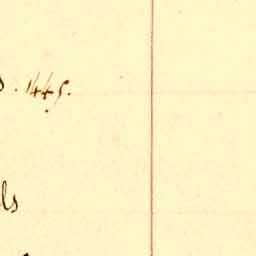 . 1445.
ls